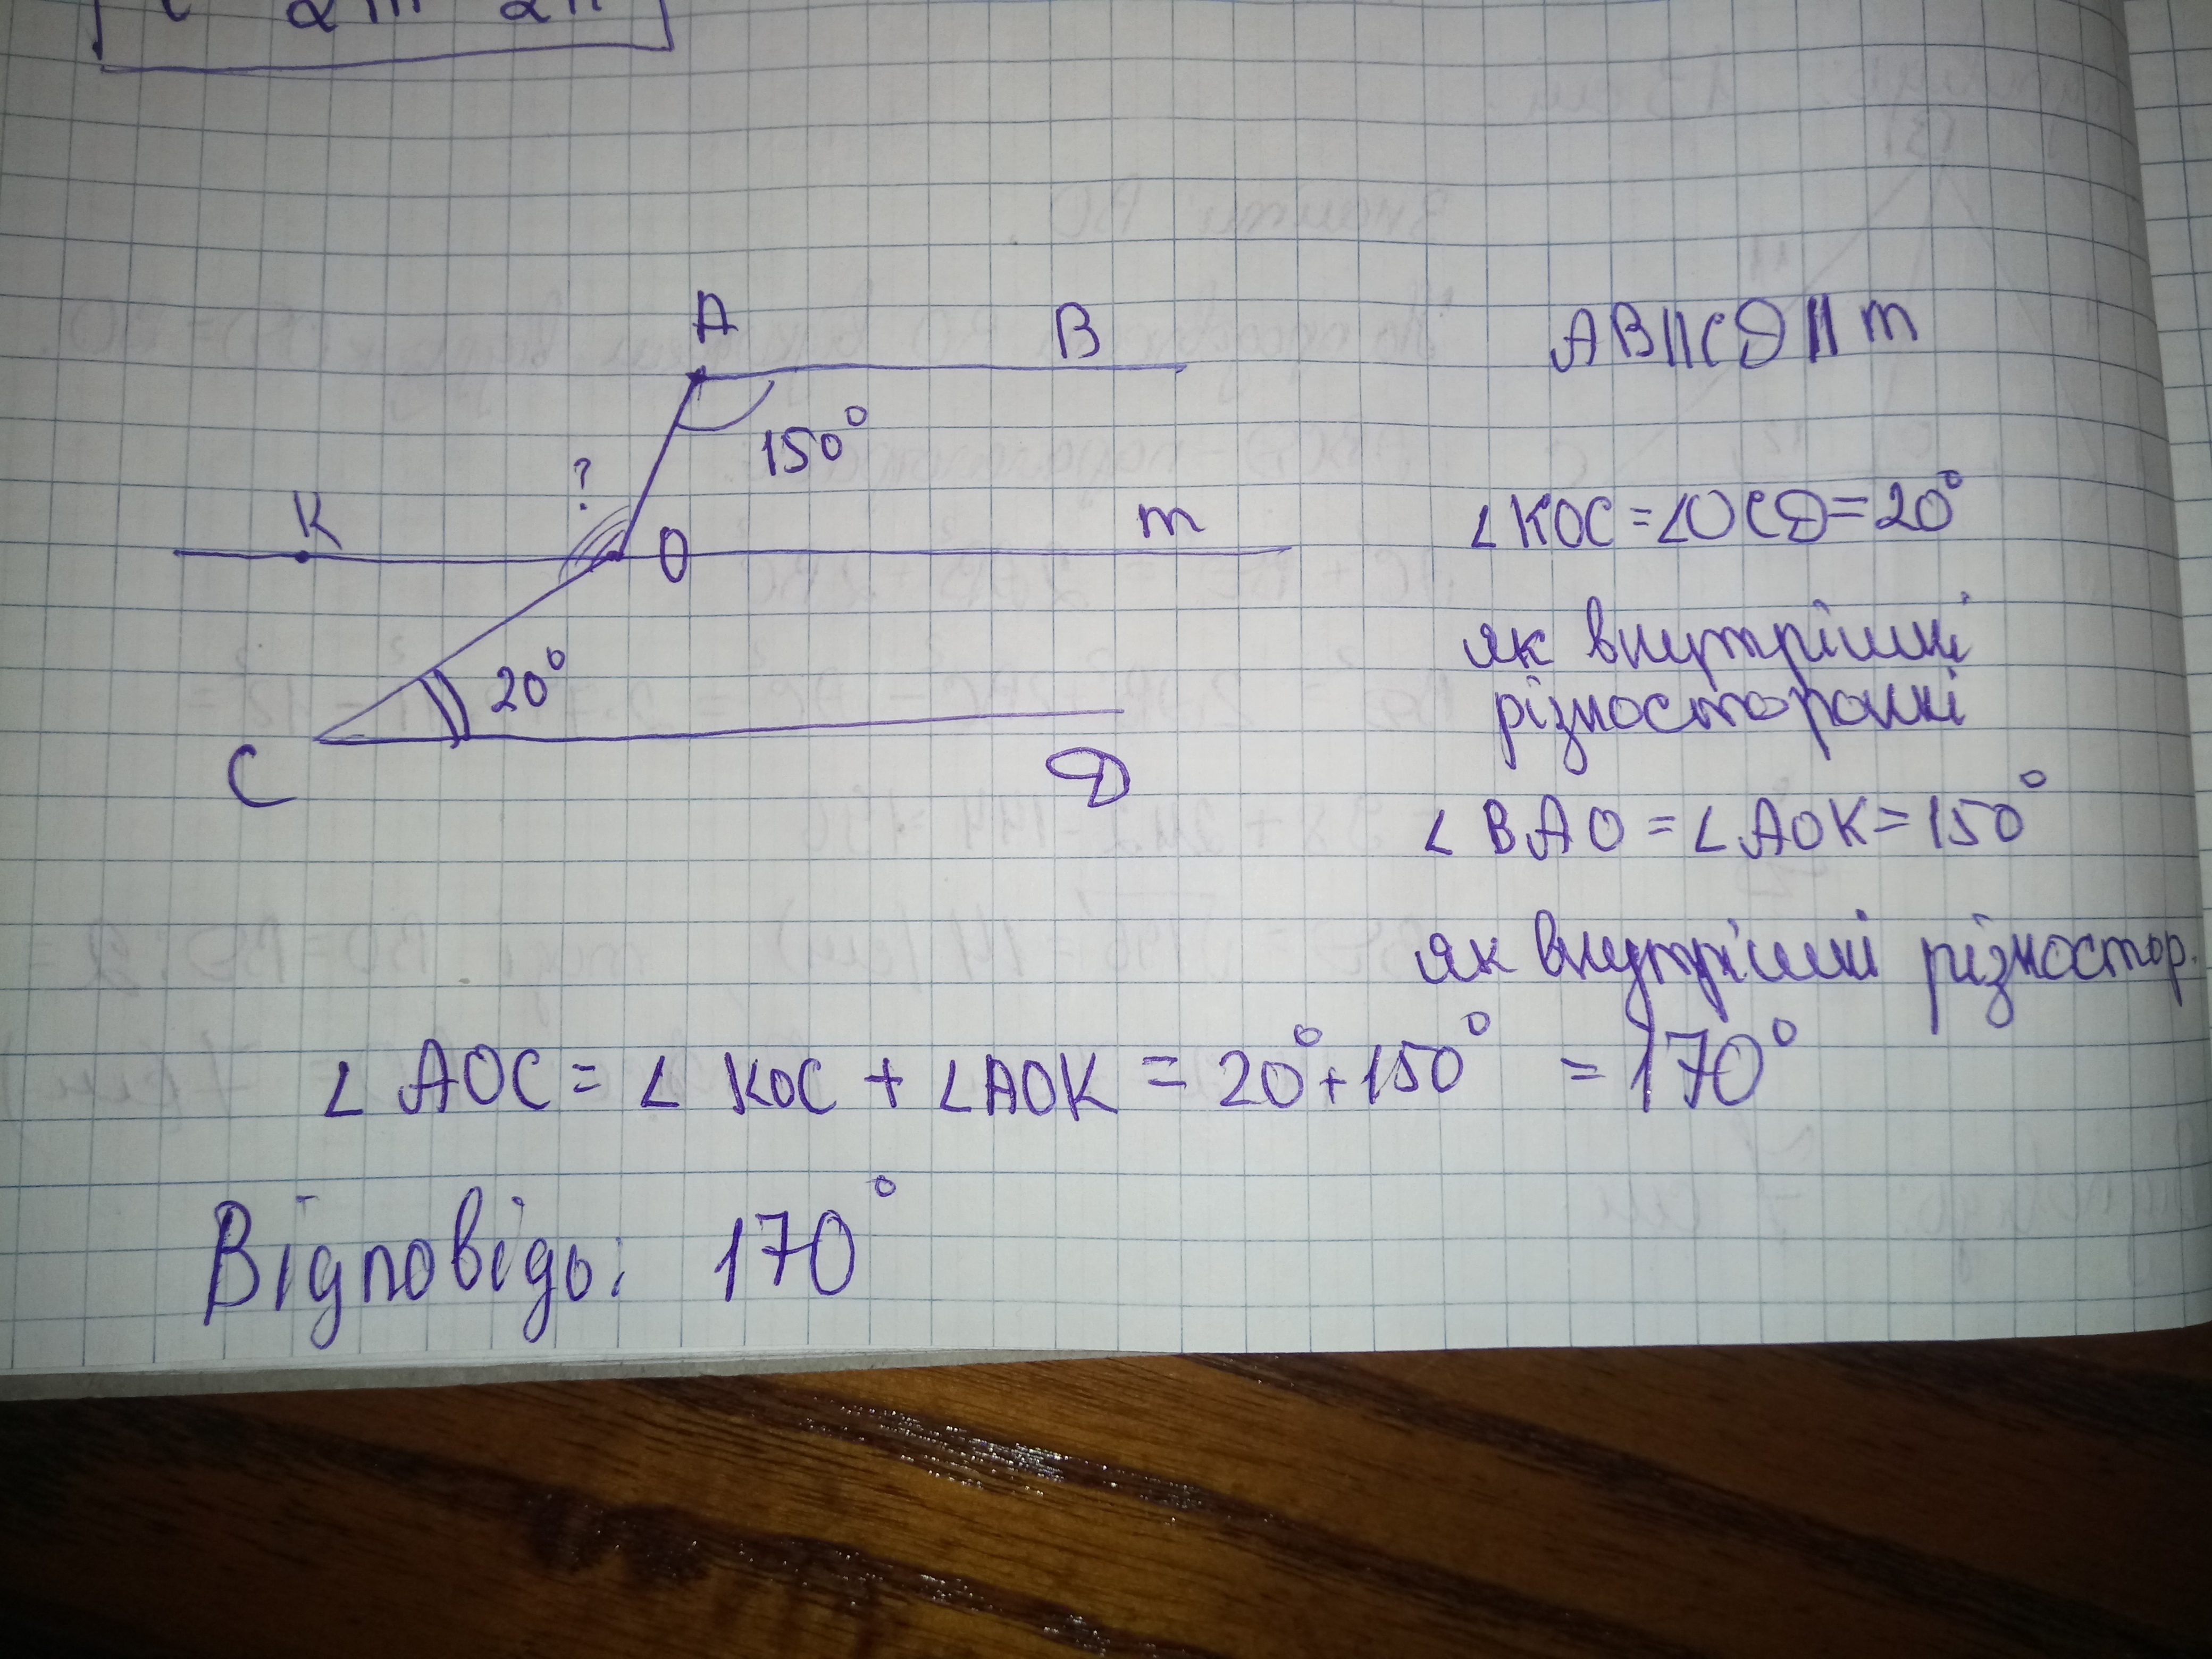 A
B
AB||CD||m
150°
?
K
O
m
∠KOC=∠OCD=20°
як внутрішні
різносторонні
20°
C
D
∠BAO=∠AOK=150°
як внутрішні різностор.
∠AOC=∠KOC+∠AOK=20°+150°=170°
Відповідь: 170°